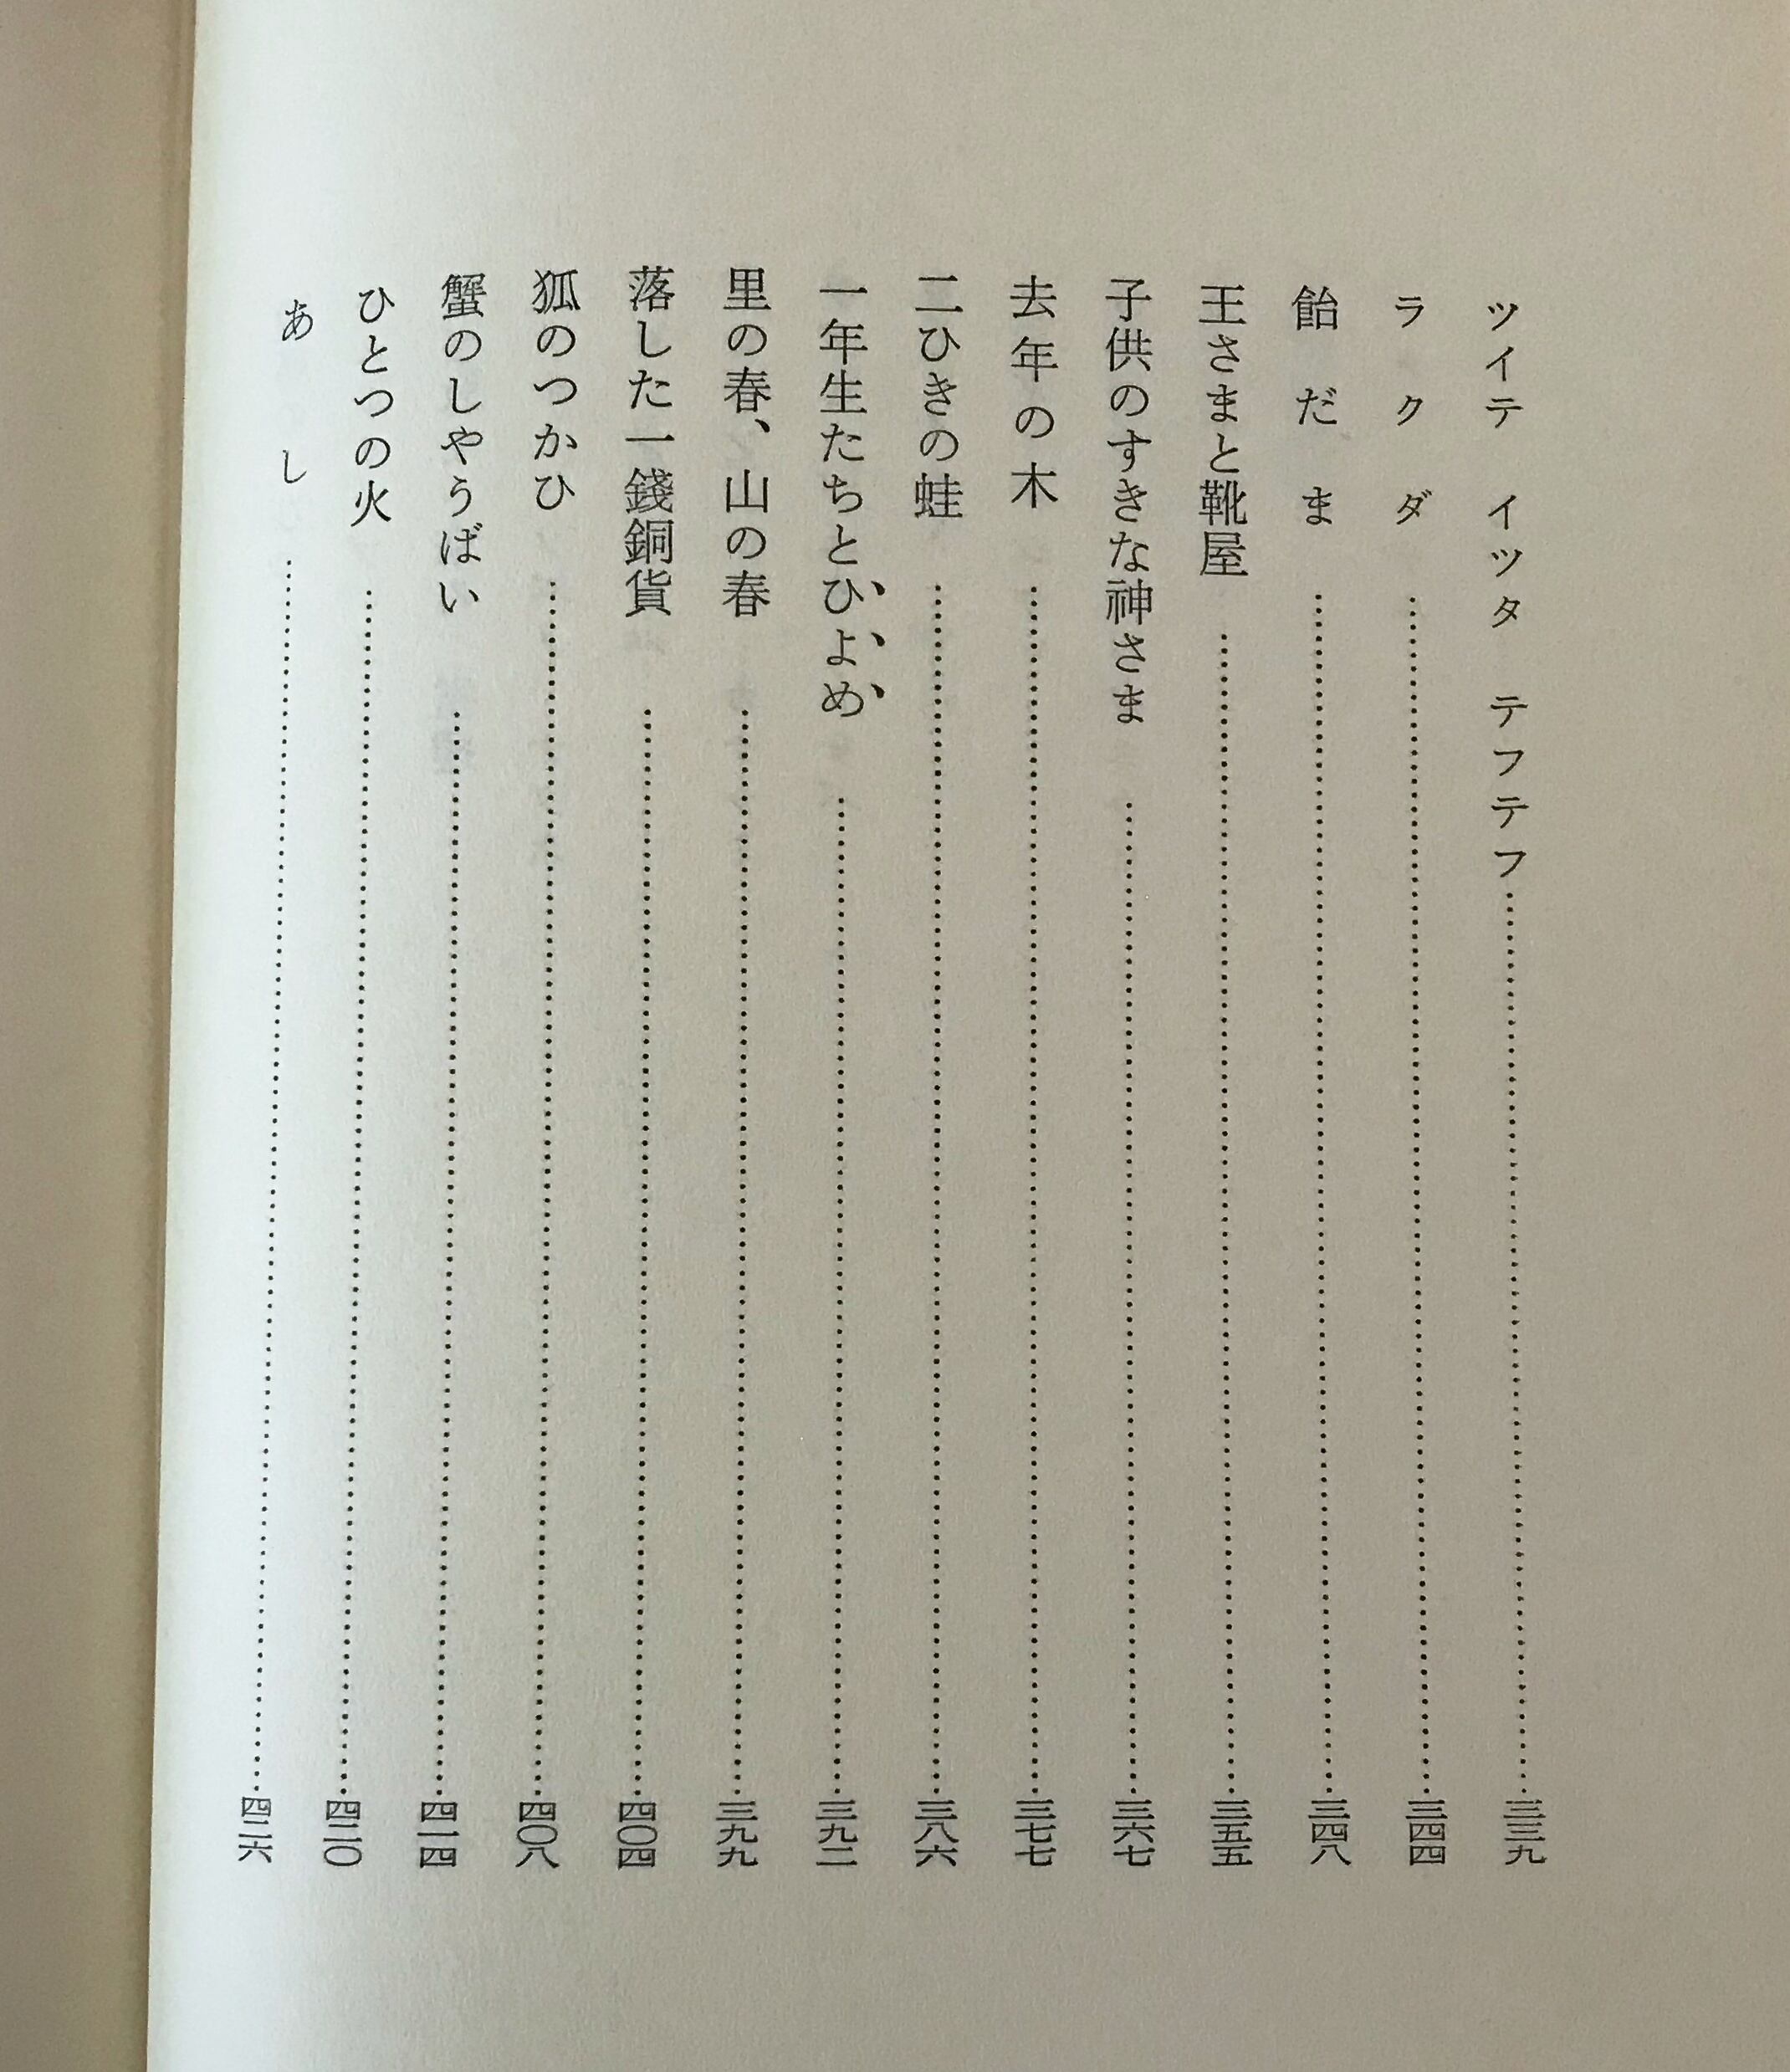 ツイテ イツタ テフテフ……三三九
ラクダ……三四四
飴だま……三四八
王さまと靴屋……三五五
子供のすきな神さま……三六七
去年の木……三七七
二ひきの蛙……三八六
一年生たちとひよめ……三九二
里の春、山の春……三九九
落した一錢銅貨……四〇四
狐のつかひ……四〇八
蟹のしやうばい……四一四
ひとつの火……四二〇
あし……四二六